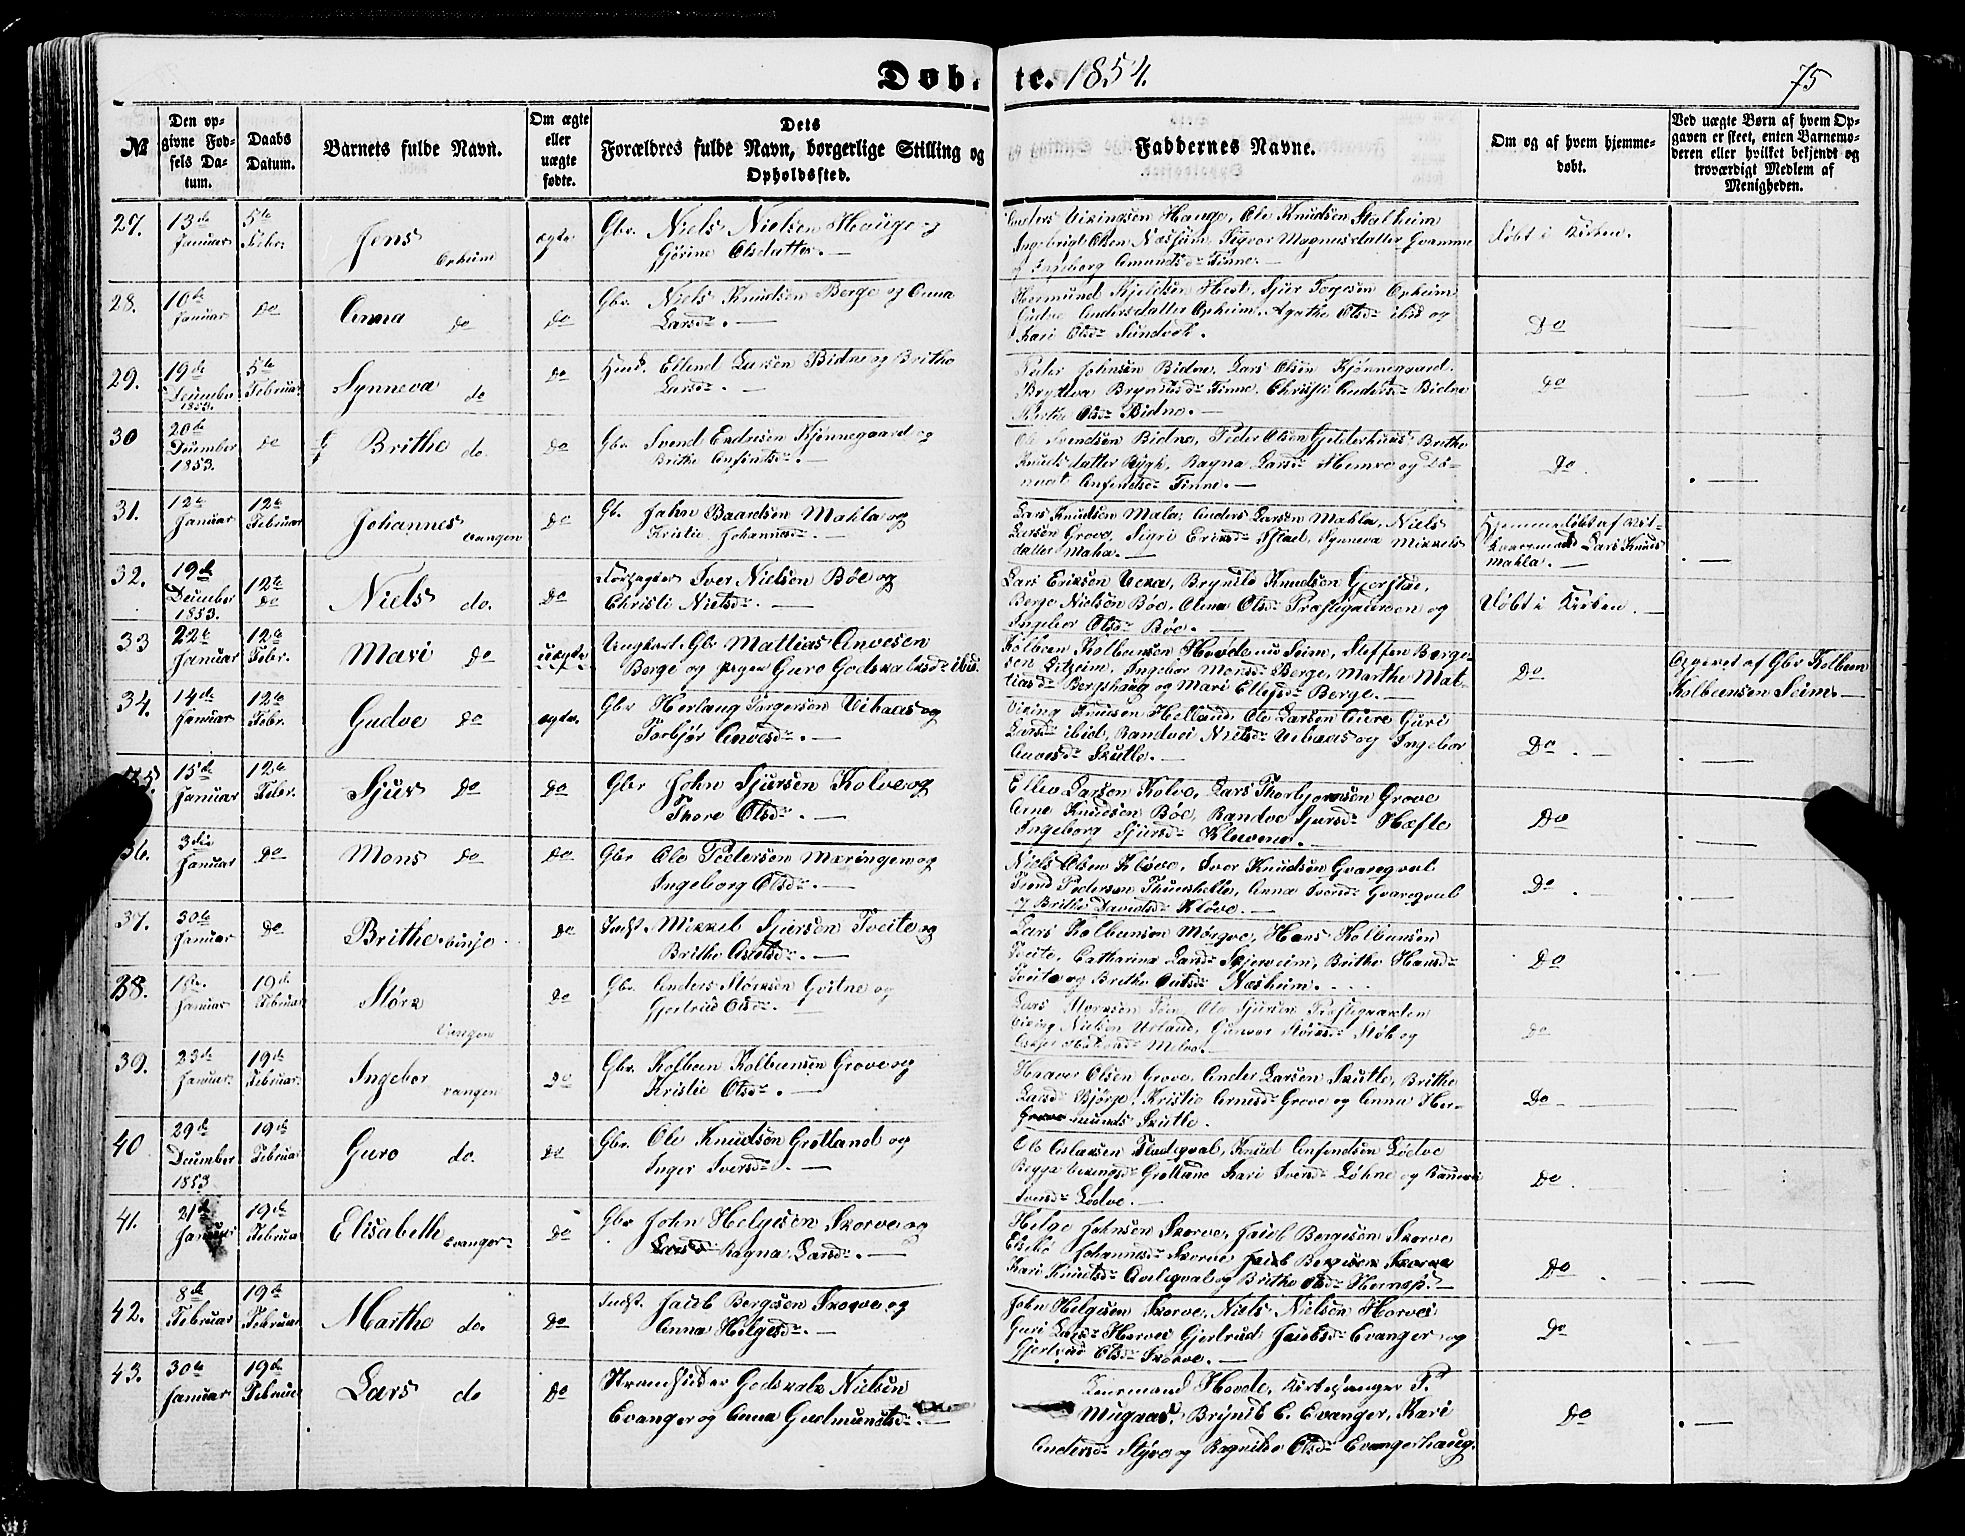 Døbte. 1854.
75
№
Den opgivne Fødsels Datum.
Daabs Datum.
Barnets fulde Navn.
Om ægte eller uægte fødte.
Dets Forældres fulde Navn, borgerlige Stilling og Opholdssted.
Faddernes Navne.
Om og af hvem hjemmedøbt.
Ved uægte Børn af hvem Opgaven er skeet, enten Barnemoderen eller hvilket bekjendt og troværdigt Medlem af Menigheden.
27. 13de Januar 5te Febr. Jens Opheim ægte Gbr. Niels Nielsen Hauge og
Gjörine Olsdatter. —
Anders Vikingsen Hauge, Ole Knudsen Stalheim
Ingebrigt Olsen Næsheim, Sigvor Magnusdatter Gvamme
og Ingeborg Amundsdr Finne. —
Døbt i Kirken.
28. 10de Januar do Anna do do Gbr. Niels Knudsen Berge og Anna
Larsdr. —
Hermund Kjeldsen Hest, Sjur Torgesen Opheim
Andersdatter Opheim, Agathe Olsdr ibid og
Kari Olsdr Sundvek.
Do
29. 19de December 1853. 5te Februar Synneva do do Huus. Ellend Larsen Bidne og Brithe
Larsdr. —
Peder Johnsen Bidne, Lars Olsen Kjönnegaard
Bryteva Brynildsdr Finne, Christi Andersdr Bidne
Olsdr Bidne. —
do
30 20de December 1853. do Brithe do. do Gbr. Svend Endresen Kjönnegaard og
Brithe Anfindsdr. —
Ole Svendsen Bidne, Peder Olsen Gjelderhuus Brithe
Knudsdatter Rygh, Ragna Larsdr Hemre og
Anfindsdr Finne. —
do
31. 12te Januar 12te Februar Johannes Vangen do Gb. John Baardsen Mahla og
Kristie Johannesdr. —
Lars Knudsen Mala, Anders Larsen Mahla, Niels
Larsen Grove, Sigri Eriksdr Istad, Synneva Mikkels
datter Mahla. —
Hjemmedöbt af
Lars Knuds
mahla. —
32. 19de December 1853. 12te do Niels do. do Iver Nielsen Böe og
Christi Nielsdr. —
Lars Eriksen Veka, Brynild Knudsen Gjerstae,
Berge Nielsen Böe, Anna Olsdr Præstegaarden og
Ingebor Olsdr Böe. —
Döbt i Kirken —
33 22de Januar 12te Febr. Mari do uægte Ungkarl Gbr Mattias Anvesen
Berge og pigen Guro Godskalksdr ibid.
Kolbein Kolbeinsen Hovde nu Seim, Steffen Berge-
sen Litheim, Ingebor Monsdr Berge, Marthe Mat-
tiasdr Bergshaug og Mari Ellefsdr Berge. —
Do
Opgivet af Gbr Kolbein
Kolbeinsen Seim. —
34. 14de Januar 12te Febr. Gudve do ægte. Gbr Herlaug Torgersen Vikaas og
Torbjör Anvesdr. —
Viking Knudsen Helland, Ole Larsen Aure Guri
Larsdr ibid, Randvei Nielsdr Vikaas og Ingebor
Skutle. —
Do. —
35. 15de Januar 12te Febr. Sjur do do Gbr John Sjursen Kolve og
Thore Olsdr. —
Ellev Larsen Kolve, Lars Thorbjörnsen Grove
Arne Knudsen Böe, Randve Sjursdr Hæfte
Ingeborg Sjursdr Klevene. —
Do
36. 3die Januar do Mons do do Gbr Ole Pedersen Mæringen og
Ingeborg Olsdr. —
Niels Olsen Klöve, Iver Knudsen Gvaregval
Trond Pedersen Thunshelle, Anna Iversdr Gvaregval
og Brithe Davidsdr Klöve. —
Do.
37. 30te Januar do Brithe Vinje do Indst. Mikkel Sjursen Tveite og
Brithe
Lars Kolbeinsen Mörgve, Hans Kolbeinsen
Tveite, Catharina Larsdr Skjerveim, Brithe Hansdr
Tveite og Brithe Næsheim.
Do
38. Januar 19de Februar Störk Vangen do Gbr. Anders Storksen Gvitne og
Gjertrud Olsdr. —
Lars Storksen, Ole Sjursen Præstegaarden
Viking Nielsen Urland, Gunvor Störksdr og
do
39. 23de Januar. 19de Februar. Ingebor Vangen do Gbr. Kolbein Kolbeinsen Grove og
Kristie Olsdr. —
Haaver Olsen Grove, Ander Larsen Skutle, Brithe
Larsdr Björge, Kristie Arnesdr Grove og Anna Her-
munds Skutle.
Do
40 29de December 1853 19de Februar Guro do. do Gbr. Ole Knudsen Grotland og
Inger Iversdr. —
Ole Aslaksen Flatequal, Knud Anfindsen Lödve
Vikingsdr Grotland Kari Svendsdr Löhne og
Iversdr Lödve. —
Do
41. 21de Januar 19de Februar Elisabeth Evanger do Gbr John Helgesen Skorve og
Ragna Larsdr. —
Helge Johnsen Skorve, Jacob Bergesen Skorve
Johannesdr Skorve
Kari Knutsdr og Brithe Olsdr —
Do
42. 8de Februar 19de Februar Marthe do. do Indst. Jacob Bergesen Skorve og
Anna Helgesdr. —
John Helgesen Skorve, Niels Nielsen Horvei
Guri Larsdr Horvei Gjertrud Jacobsdr Evanger og
Gjertrud Olsdr Skorve. —
Do
43. 30te Januar 19de Februar Lars do do Strandsidder Godskalk Nielsen
Evanger og Anna Gudmundsdr. —
Lensmand Hovde, Kirkesanger P.
Mugaas, Brynild E. Evanger, Kari
Andersdr Styve og Ragnilde Olsdr Evangerhaug.
do